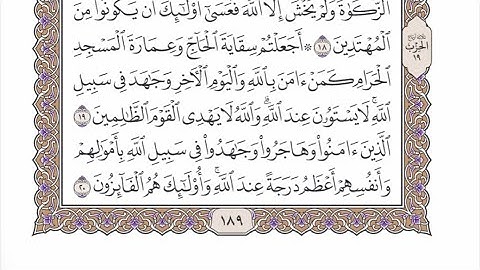 ٱلزَّكَوٰةَ وَلَمْ يَخْشَ إِلَّا ٱللَّهَ فَعَسَىٰٓ أُو۟لَٰٓئِكَ أَن يَكُونُوا۟ مِنَ
ٱلْمُهْتَدِينَ ١٨ ۞ أَجَعَلْتُمْ سِقَايَةَ ٱلْحَآجِّ وَعِمَارَةَ ٱلْمَسْجِدِ
ٱلْحَرَامِ كَمَنْ ءَامَنَ بِٱللَّهِ وَٱلْيَوْمِ ٱلْءَاخِرِ وَجَٰهَدَ فِى سَبِيلِ
ٱللَّهِ ۚ لَا يَسْتَوُۥنَ عِندَ ٱللَّهِ ۗ وَٱللَّهُ لَا يَهْدِى ٱلْقَوْمَ ٱلظَّٰلِمِينَ ١٩
ٱلَّذِينَ ءَامَنُوا۟ وَهَاجَرُوا۟ وَجَٰهَدُوا۟ فِى سَبِيلِ ٱللَّهِ بِأَمْوَٰلِهِمْ
وَأَنفُسِهِمْ أَعْظَمُ دَرَجَةً عِندَ ٱللَّهِ ۚ وَأُو۟لَٰٓئِكَ هُمُ ٱلْفَآئِزُونَ ٢٠
الحزب
١٩
١٨٩